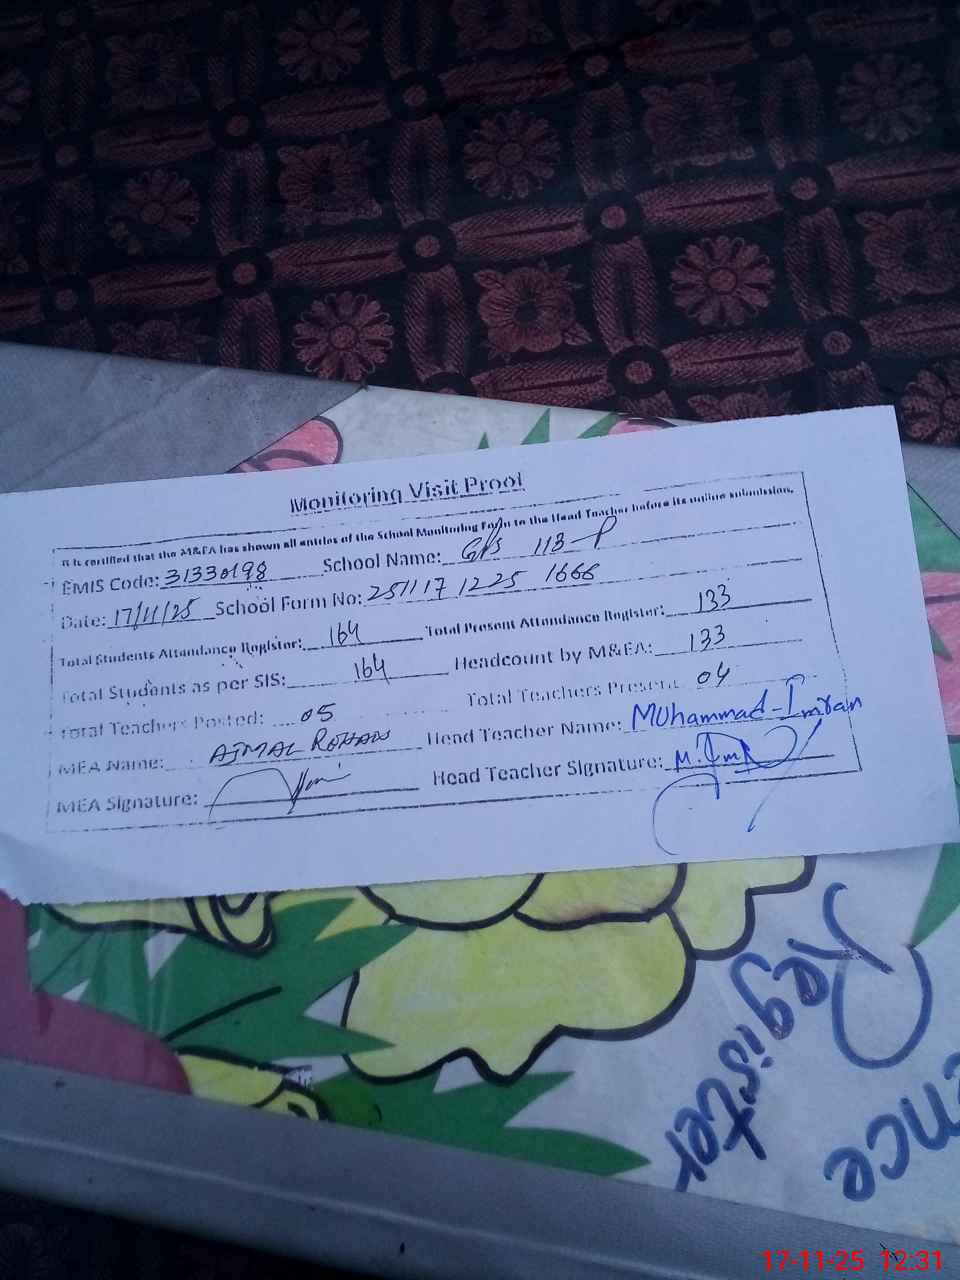 Monitoring Visit Proof
It is certified that the M&EA has shown all entries of the School Monitoring Form to the Head Teacher before its online submission.
EMIS Code: 31330198 School Name: GPS 113-P
Date: 17/11/25 School Form No: 251117 1225 1666
Total Students Attendance Register: 164 Total Present Attendance Register: 133
Total Students as per SIS: 164 Headcount by M&EA: 133
Total Teachers Posted: 05 Total Teachers Present 04
MEA Name: AJMAL Head Teacher Name: MUhammad-Imran
MEA Signature: Head Teacher Signature: M.Imr
Register
nce
17-11-25 12:31